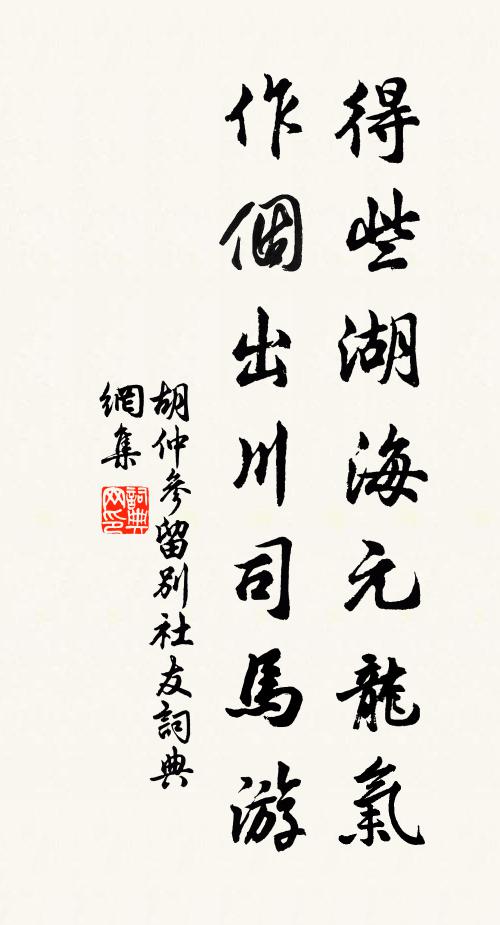 得些湖海元龍氣
作個出川司馬游
胡仲參留別社友詞典
網集
詞典
网印